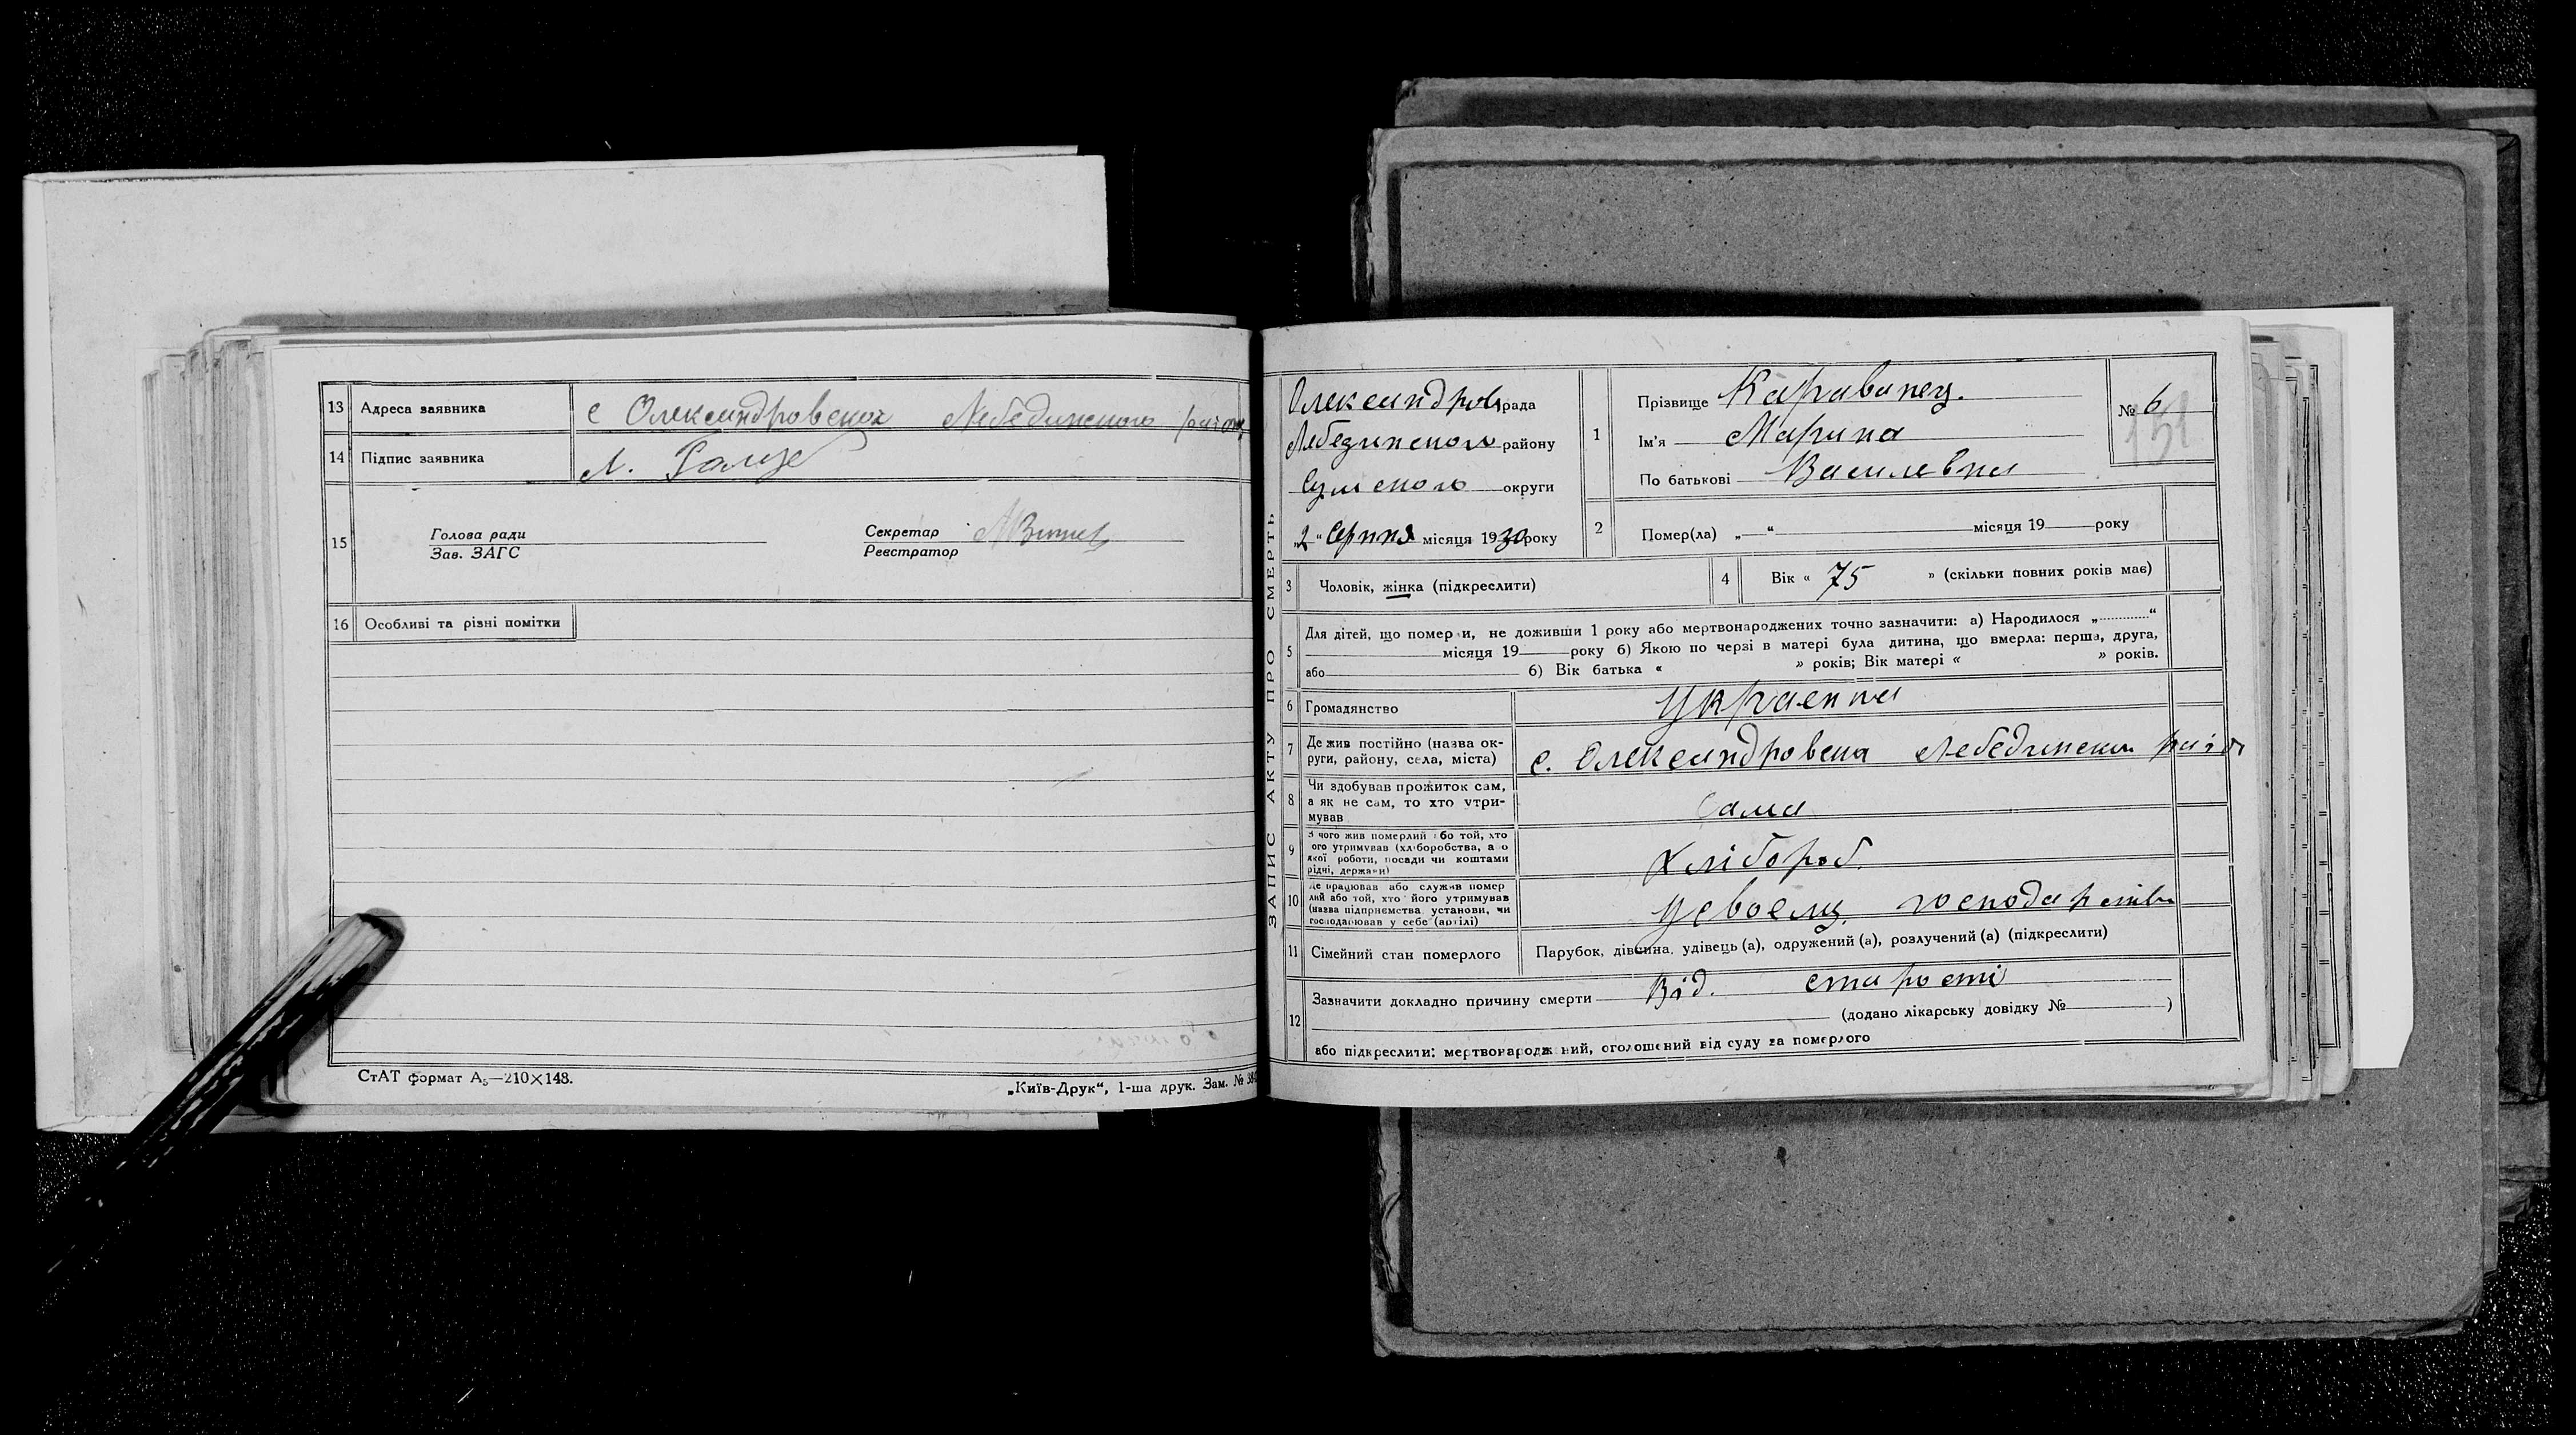 13 Адреса заявника с Олександровська Лебединського район
14 Підпис заявника
15 Голова ради Секретар
Зав. ЗАГС Реєстратор
16 Особливі та різні помітки
СтАТ формат А₅—210×148.
„Київ-Друк“, 1-ша друк. Зам. №
ЗАПИС АКТУ ПРО СМЕРТЬ
Олександрів рада
Лебединського району
Сумського округи
„2“ Серпня місяця 1930 року
1 Прізвище Караванец.
Ім'я Марина
По батькові Василевна
№ 6
151
2 Помер(ла) „ “ місяця 19 року
3 Чоловік, жінка (підкреслити)
4 Вік « 75 » (скільки повних років має)
5 Для дітей, що померли, не доживши 1 року або мертвонароджених точно зазначити: а) Народилося „ “
місяця 19 року б) Якою по черзі в матері була дитина, що вмерла: перша, друга,
або б) Вік батька « » років; Вік матері « » років.
6 Громадянство Украенка
7 Де жив постійно (назва ок-
руги, району, села, міста) с. Олександровська Лебединськ рай
8 Чи здобував прожиток сам,
а як не сам, то хто утри-
мував Сама
9 З чого жив померлий або той, хто
його утримував (хліборобства, або
якої роботи, посади чи коштами
рідні, держави) Хлібороб.
10 Де працював або служив помер
лий або той, хто його утримував
(назва підприємства установи, чи
господарював у себе (артілі) У своему господарстві
11 Сімейний стан померлого Парубок, дівчина, удівець (а), одружений (а), розлучений (а) (підкреслити)
12 Зазначити докладно причину смерти Від. старості
(додано лікарську довідку № )
або підкреслити: мертвонароджений, оголошений від суду за померлого